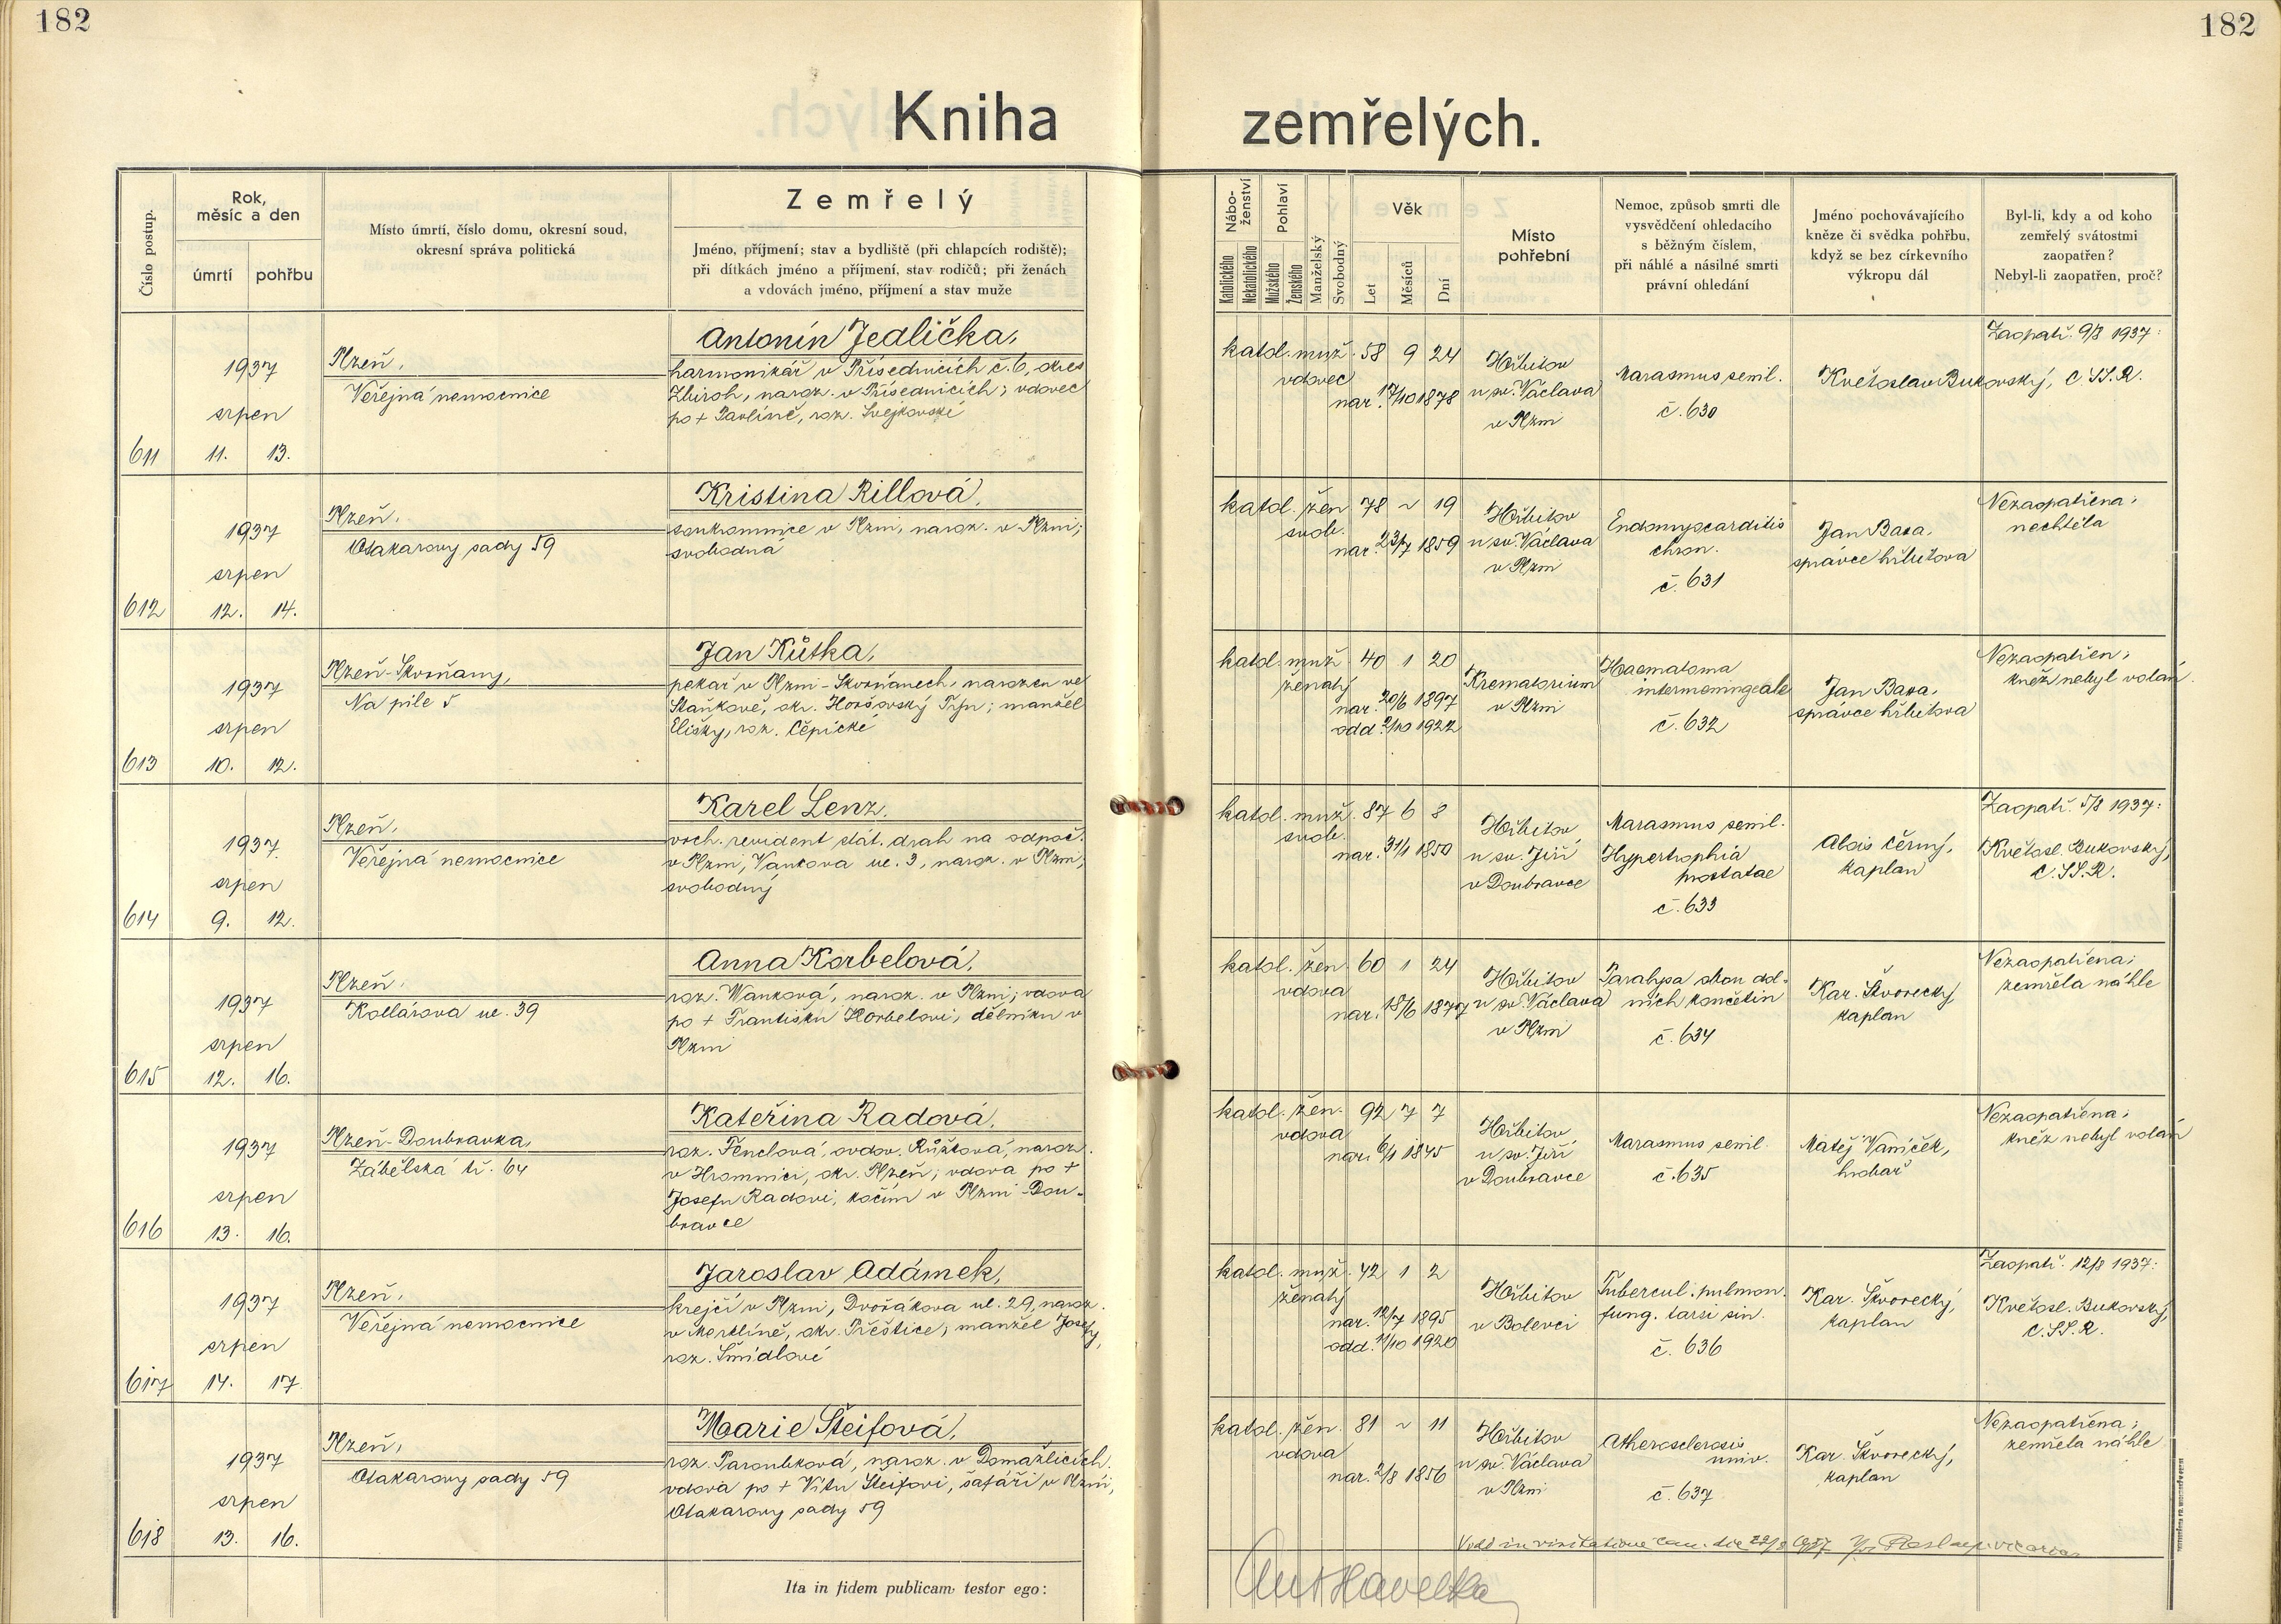 182
182
Kniha zemřelých.
Číslo postup.
Rok, měsíc a den
úmrtí
pohřbu
Místo úmrtí, číslo domu, okresní soud,
okresní správa politická
Zemřelý
Jméno, příjmení; stav a bydliště (při chlapcích rodiště);
při dítkách jméno a příjmení, stav rodičů; při ženách
a vdovách jméno, příjmení a stav muže
Nábo-
ženství
Katolického
Nekatolického
Pohlaví
Mužského
Ženského
Manželský
Svobodný
Věk
Let
Měsíců
Dní
Místo
pohřební
Nemoc, způsob smrti dle
vysvědčení ohledacího
s běžným číslem,
při náhlé a násilné smrti
právní ohledání
Jméno pochovávajícího
kněze či svědka pohřbu,
když se bez církevního
výkropu dál
Byl-li, kdy a od koho
zemřelý svátostmi
zaopatřen?
Nebyl-li zaopatřen, proč?
611
1937
srpen
11. 13.
Plzeň,
Veřejná nemocnice
Antonín Jedlička,
harmonikář v Přísednicích č. 6, okres
Zbiroh, naroz. v Přísednicích; vdovec
po + Pavlíně, roz. Švejkovské
katol. muž. 58 9 24
vdovec
nar. 17/10 1878
Hřbitov
u sv. Václava
v Plzni
Marasmus senil.
č. 630
Květoslav Bukovský, C.SS.R.
Zaopatř. 9/8 1937:
612
1937
srpen
12. 14.
Plzeň,
Otakarovy sady 59
Kristina Rillová,
soukromnice v Plzni, naroz. v Plzni;
svobodná
katol. žen 78 ~ 19
svob.
nar. 23/7 1859
Hřbitov
u sv. Václava
v Plzni
Endomyocarditis
chron.
č. 631
Jan Basa,
správce hřbitova
Nezaopatřena;
nechtěla
613
1937
srpen
10. 12.
Plzeň-Skvrňany,
Na pile 5
Jan Kůtka,
pekař v Plzni-Skvrňanech, narozen ve
Staňkově, okr. Horšovský Týn; manžel
Elišky, roz. Čepické
katol. muž 40 1 20
ženatý
nar. 20/6 1897
odd. 2/10 1922
Krematorium
v Plzni
Haematoma
intermeningeale
č. 632
Jan Basa,
správce hřbitova
Nezaopatřen;
kněz nebyl volán.
614
1937
srpen
9. 12.
Plzeň,
Veřejná nemocnice
Karel Lenz,
vrch. revident stát. drah na odpoč.
v Plzni, Vankova ul. 3, naroz. v Plzni,
svobodný
katol. muž. 87 6 8
svob.
nar. 31/1 1850
Hřbitov
u sv. Jiří
v Doubravce
Marasmus senil.
Hypertrophia
prostatae
č. 633
Alois Černý,
kaplan
Zaopatř. 5/8 1937:
Květosl. Bukovský,
C.SS.R.
615
1937
srpen
12. 16.
Plzeň,
Kollárova ul. 39
Anna Korbelová,
roz. Wanková, naroz. v Plzni; vdova
po + Františku Korbelovi, dělníku v
Plzni
katol. žen 60 1 24
vdova
nar. 18/6 1877
Hřbitov
u sv. Václava
v Plzni
Paralysa obou dol-
ních končetin
č. 634
Kar. Škvorecký
kaplan
Nezaopatřena;
zemřela náhle
616
1937
srpen
13. 16.
Plzeň-Doubravka,
Zábělská tř. 64
Kateřina Radová,
roz. Fenclová, ovdov. Růžková, naroz.
v Hromnici, okr. Plzeň; vdova po +
Josefu Radovi, kočím v Plzni-Dou-
bravce
katol. žen. 92 7 7
vdova
nar. 6/1 1845
Hřbitov
u sv. Jiří
v Doubravce
Marasmus senil.
č. 635
Matěj Vaníček,
hrobař
Nezaopatřena;
kněz nebyl volán
617
1937
srpen
14. 17.
Plzeň,
Veřejná nemocnice
Jaroslav Adámek,
krejčí v Plzni, Dvořákova ul. 29, naroz.
v Merklíně, okr. Přeštice; manžel Josefy,
roz. Šmídlové
katol. muž. 42 1 2
ženatý
nar. 12/7 1895
odd. 11/10 1920
Hřbitov
v Bolevci
Tubercul. pulmon.
fung. tarsi sin.
č. 636
Kar. Škvorecký,
kaplan
Zaopatř. 12/8 1937:
Květosl. Bukovský,
C.SS.R.
618
1937
srpen
13. 16.
Plzeň,
Otakarovy sady 59
Marie Šteifová,
roz. Paroubková, naroz. v Domažlicích.
vdova po + Vítu Šteifovi, šafáři v Plzni,
Otakarovy sady 59
katol. žen. 81 ~ 11
vdova
nar. 2/8 1856
Hřbitov
u sv. Václava
v Plzni
Atherosclerosis
univ.
č. 637
Kar. Škvorecký,
kaplan
Nezaopatřena;
zemřela náhle
Vidi in visitatione can. die
Ita in fidem publicam testor ego:
Ant Havelka